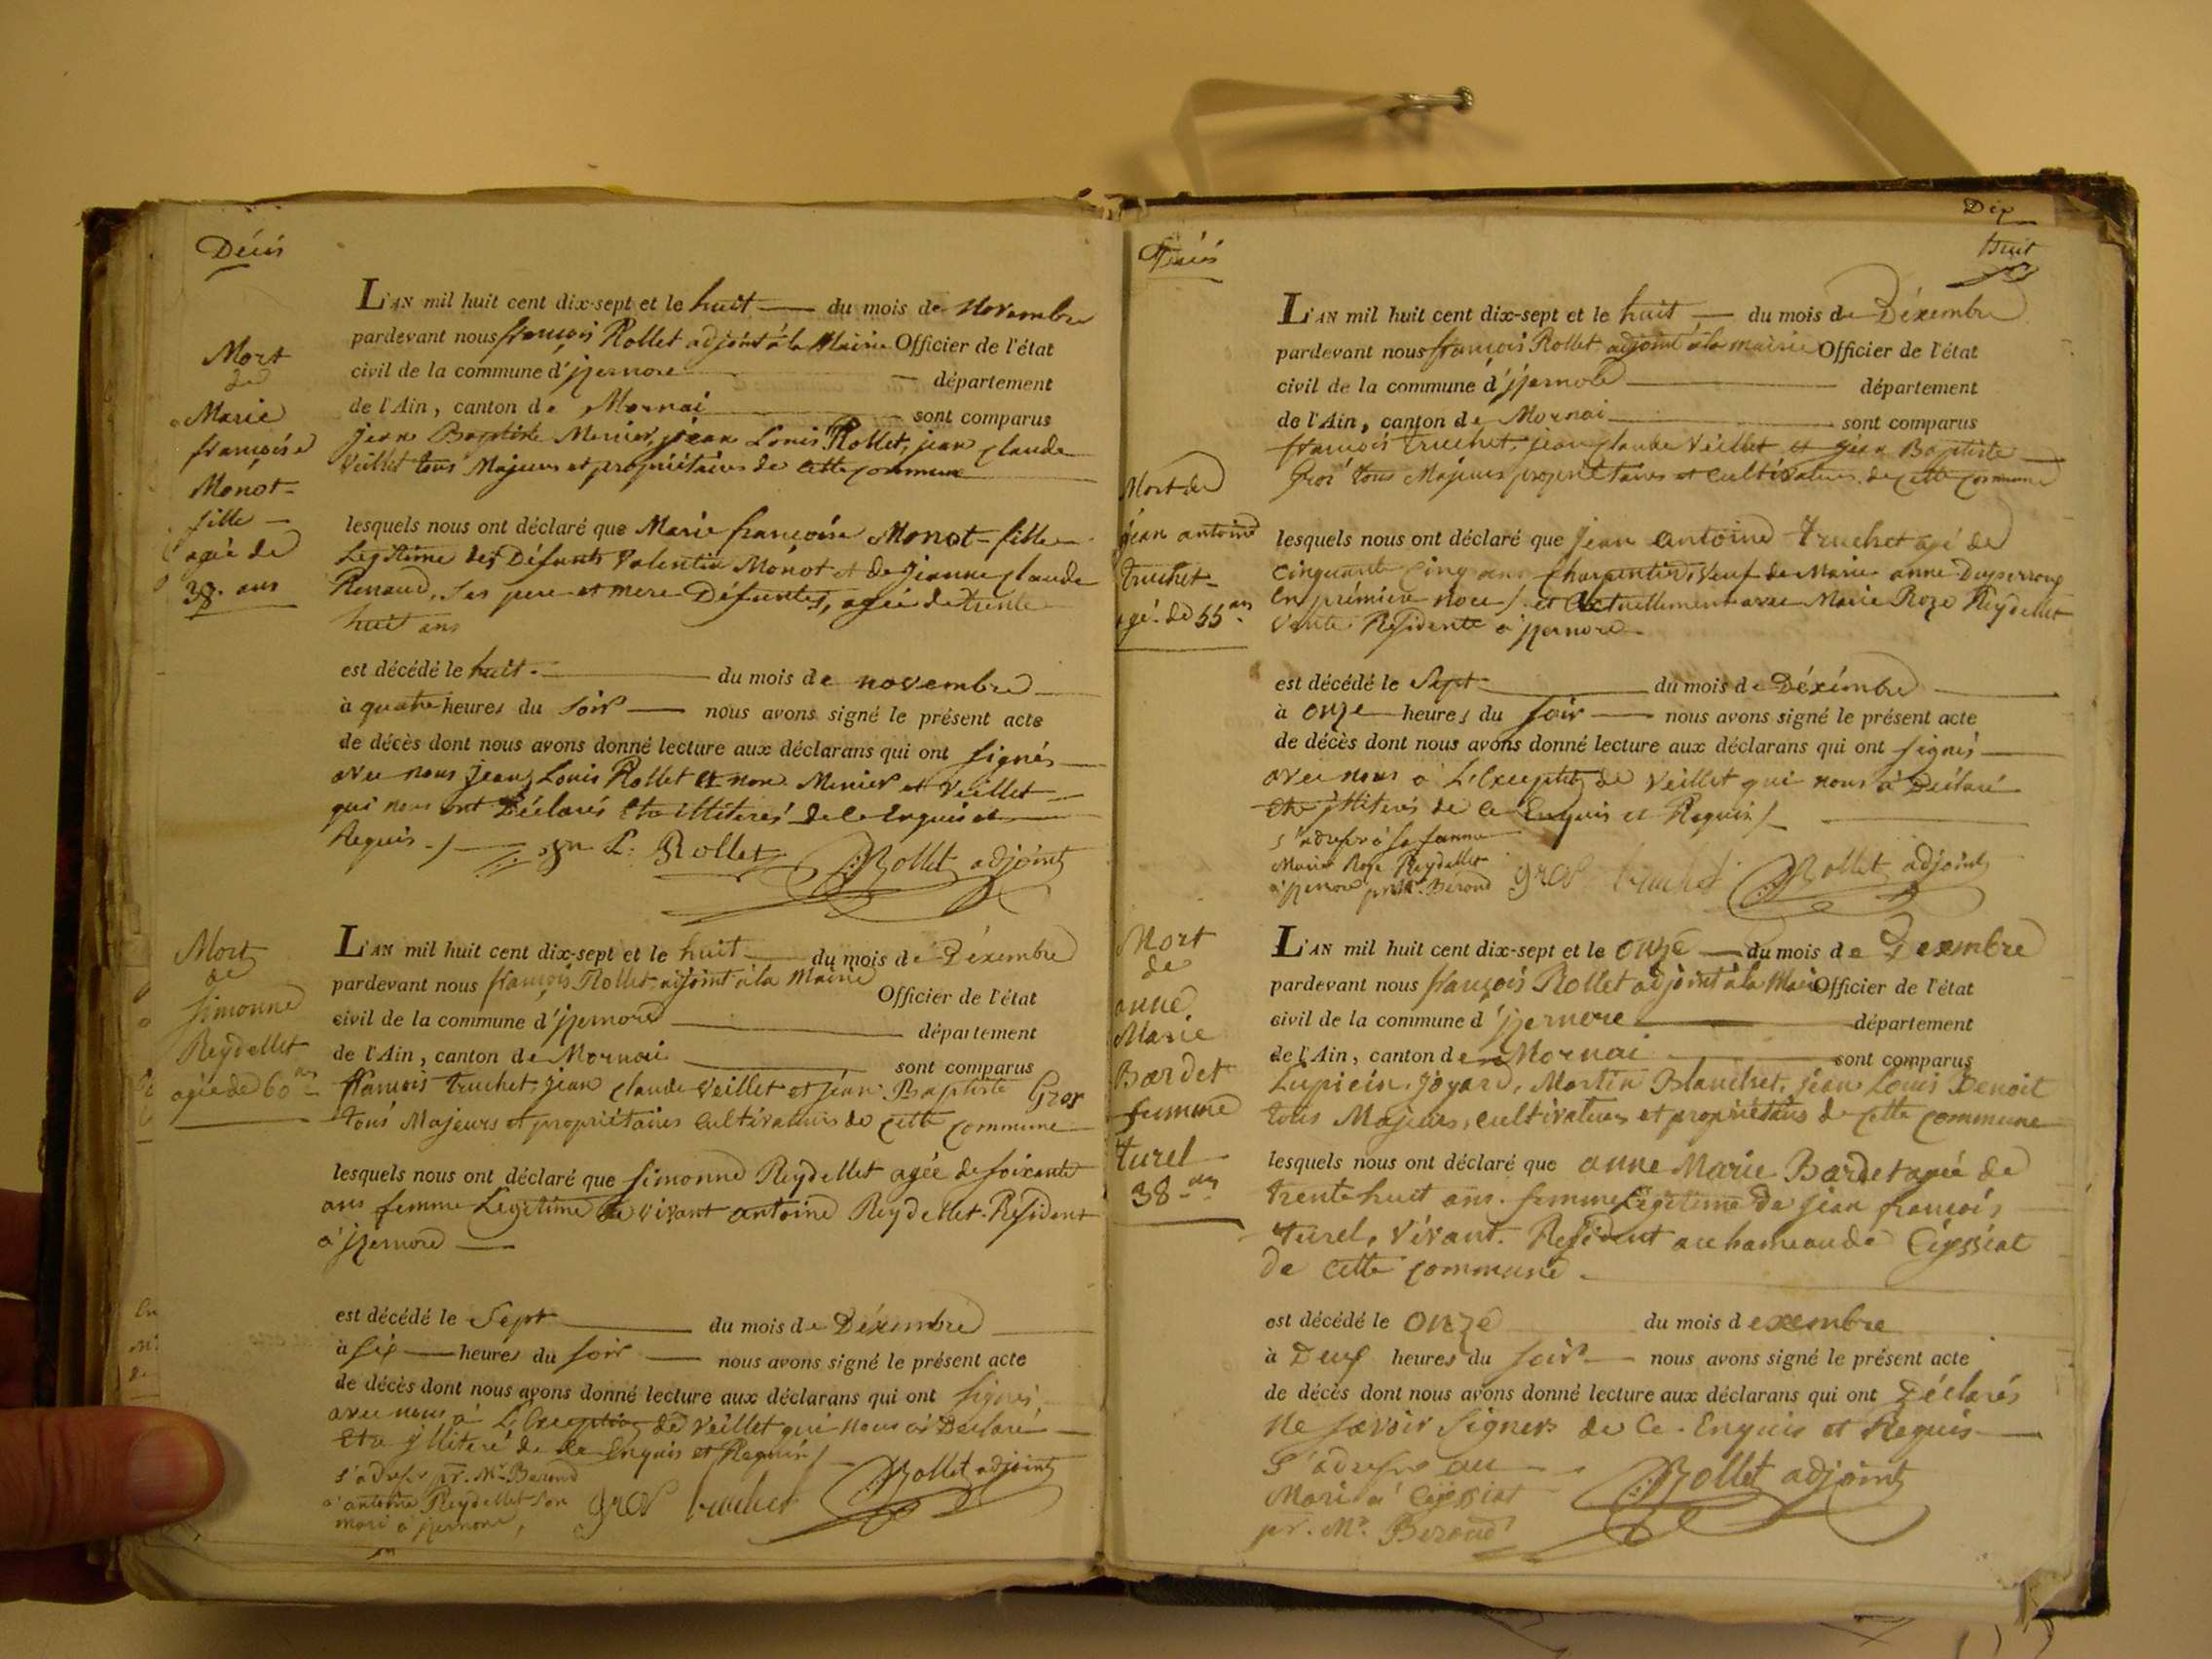 Décès
Mort
de
Marie
françoise
Monot
fille
agée de
38. ans
L'AN mil huit cent dix-sept et le huit du mois de Novembre
pardevant nous françois Rollet adjoint à la Mairie Officier de l'état
civil de la commune d'jzernore département
de l'Ain, canton de Mornai sont comparus
jean Baptiste Mercier, jean Louis Rollet, jean claude
Veillet tous Majeurs et propriétaires de cette commune
lesquels nous ont déclaré que Marie françoise Monot fille
Legitime des Défunts Valentin Monot et de Jeanne claude
Renaud, ses pere et mere Défuntes, agée de trente
huit ans
est décédé le huit. du mois de novembre
à quatre heures du soir nous avons signé le présent acte
de décès dont nous avons donné lecture aux déclarans qui ont signés
avec nous jean Louis Rollet et non et Veillet
qui nous ont Déclarés Etre illiterés de ce Enquis et
Requis
jn L. Rollet Rollet adjoint
Mort
de
simonne
Reydellet
agée de 60 ans
L'AN mil huit cent dix-sept et le huit du mois de Déxembre
pardevant nous françois Rollet adjoint à la Mairie Officier de l'état
civil de la commune d'jzernore département
de l'Ain, canton de Mornai sont comparus
françois truchet, jean claude Veillet et jéan Baptiste Gros
tous Majeurs et propriétaires Cultivateurs de cette commune
lesquels nous ont déclaré que simonne Reydellet agée de soixante
ans femme Legitime de vivant antoine Reydellet Résident
à jzernore
est décédé le Sept du mois de Déxembre
à six heures du soir nous avons signé le présent acte
de décès dont nous avons donné lecture aux déclarans qui ont signés
avec nous à L'Exception de Veillet qui nous à Déclaré
Etre jlliteré de ce Enquis et Requis
s'adresser pr. Mr. Beroud
à antoine Reydellet son
mari à jzernore,
gros truchet Rollet adjoint
Dix
huit
Décès
Mort de
jean antoine
truchet
agé de 55 ans
L'AN mil huit cent dix-sept et le huit du mois de Déxembre
pardevant nous françois Rollet adjoint à la mairie Officier de l'état
civil de la commune d'jzernore département
de l'Ain, canton de Mornai sont comparus
françois truchet, jean claude Veillet et jéan Baptiste
Gros tous Majeurs propriétaires et Cultivateurs de cette commune
lesquels nous ont déclaré que jean antoine truchet agé de
cinquante cinq ans charpentier, Veuf de Marie anne
En prémiere noce et actuellement avec Marie Roze Reydellet
Résidente à jzernore
est décédé le Sept du mois de Déxémbre
à onze heures du soir nous avons signé le présent acte
de décès dont nous avons donné lecture aux déclarans qui ont signés
avec nous à L'Exception de Veillet qui nous à Déclaré
Etre jlliterés de ce Enquis et Requis
s'adresser à sa famme
Marie Roze Reydellet
à jzernore pr. Mr. Beroud
gros truchet Rollet adjoint
Mort
de
anne
Marie
Bardet
femme
turel
38 ans
L'AN mil huit cent dix-sept et le onze du mois de Dexembre
pardevant nous françois Rollet adjoint à la Mairie Officier de l'état
civil de la commune d'jzernore département
de l'Ain, canton de Mornai sont comparus
Lupicin joyard, Martin Blanchet, jean Louis Benoit
tous Majeurs, cultivateurs et propriétaires de cette commune
lesquels nous ont déclaré que anne Marie Bardet agée de
trente huit ans. femme Légitime de jean françois
turel, Vivant. Résident au hameau de Ceyssiat
de cette commune.
est décédé le onze du mois d exembre
à Deux heures du soir nous avons signé le présent acte
de décès dont nous avons donné lecture aux déclarans qui ont Déclarés
Ne savoir signer de Ce. Enquis et Requis
S'adresser au
Mari à Ceyssiat
pr. Mr. Beroud
Rollet adjoint